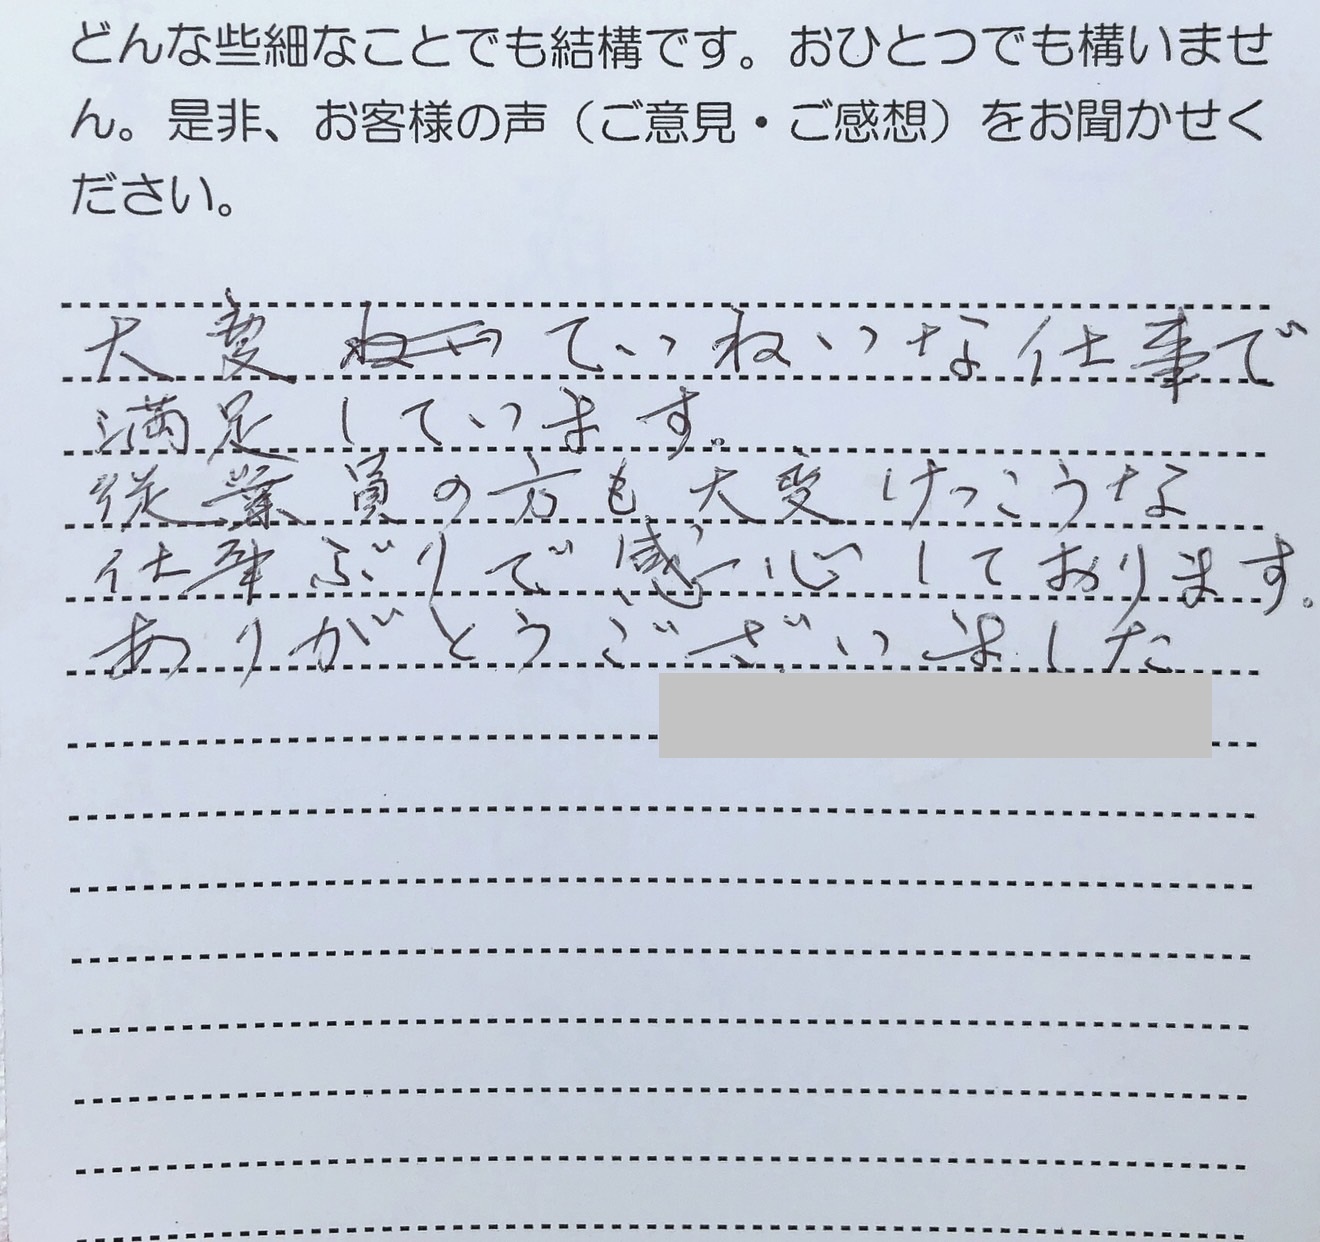 どんな些細なことでも結構です。おひとつでも構いませ
ん。是非、お客様の声（ご意見・ご感想）をお聞かせく
ださい。
大変ていねいな仕事で
満足しています。
従業員の方も大変けっこうな
仕事ぶりで感心しております。
ありがとうございました